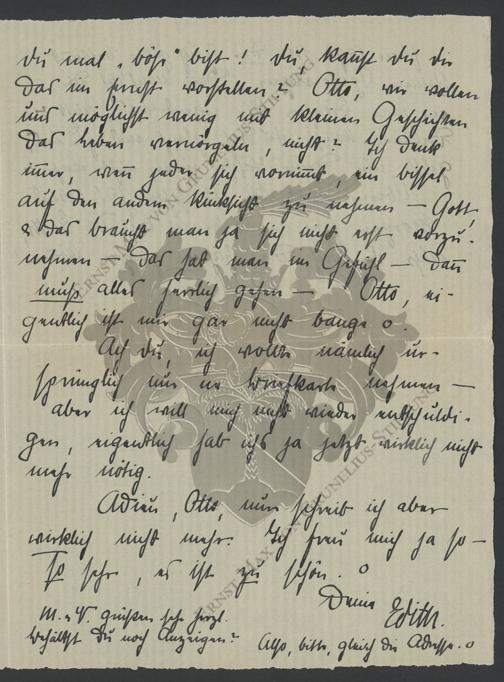 du mal „böse" bist! Du, kannst du dir
das im Ernst vorstellen? Otto, wir wollen
uns möglichst wenig mit kleinen Geschichten
das Leben vernörgeln, nicht? Ich denk
immer, wenn jeder sich vornimmt, ein bissel
auf den andern Rücksicht zu nehmen – Gott,
& das braucht man ja sich nicht erst vorzu-
nehmen – das hat man im Gefühl – dann
muß alles herrlich gehen – Otto, ei-
gentlich ist mir gar nicht bange.
Ach du, ich wollte nämlich ur-
sprünglich nur ne Briefkarte nehmen –
aber ich will mich nicht wieder entschuldi-
gen, eigentlich hab ichs ja jetzt wirklich nicht
mehr nötig.
Adieu, Otto, nun schreib ich aber
wirklich nicht mehr. Ich freu mich ja so –
so sehr, es ist zu schön.
Deine Edith.
M. & V. grüßen sehr herzl.
Behältst Du noch Anzeigen? Also, bitte, gleich die Adresse.
ERNST MAX VON GRUNELIUS-STIFTUNG
ERNST MAX GRUNELIUS-STIFTUNG